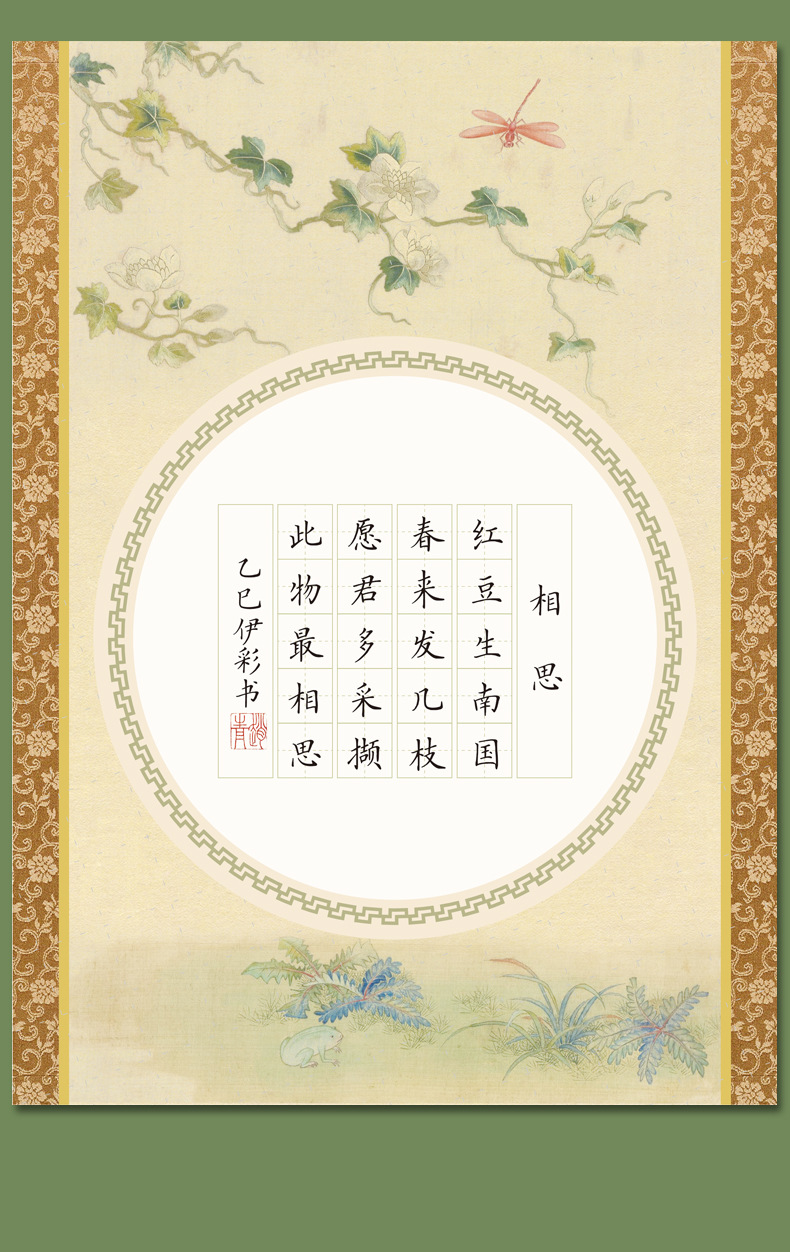 相思
红豆生南国
春来发几枝
愿君多采撷
此物最相思
乙巳伊彩书